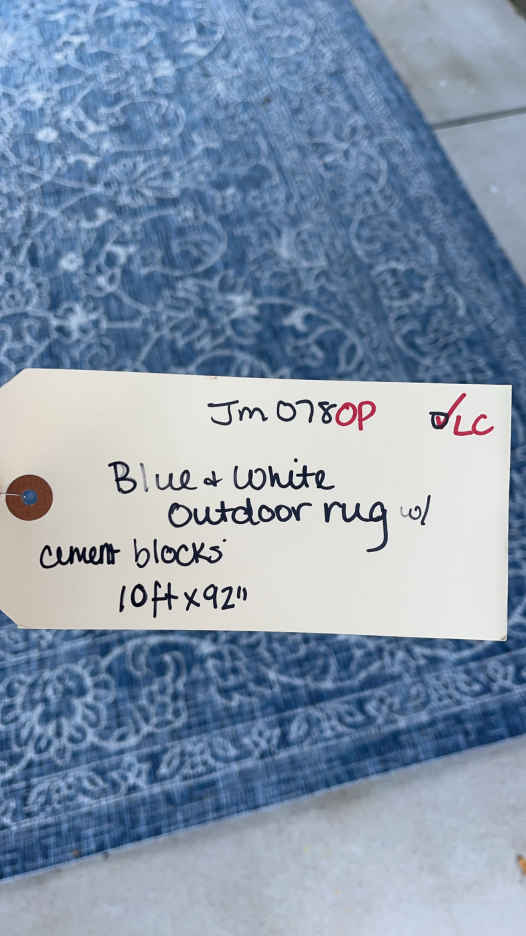 Jm078OP ☑LC
Blue & White
Outdoor rug w/
cement blocks
10ft x 92"